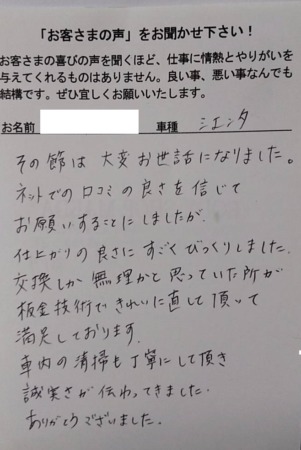 「お客さまの声」をお聞かせ下さい！
お客さまの喜びの声を聞くほど、仕事に情熱とやりがいを
与えてくれるものはありません。良い事、悪い事なんでも
結構です。ぜひ宜しくお願いいたします。
お名前 車種 シエンタ
その節は大変お世話になりました。
ネットでの口コミの良さを信じて
お願いすることにしましたが、
仕上がりの良さにすごくびっくりしました。
交換しか無理かと思っていた所が
板金技術できれいに直して頂って
満足しております。
車内の清掃も丁寧にして頂き
誠実さが伝わってきました。
ありがとうございました。